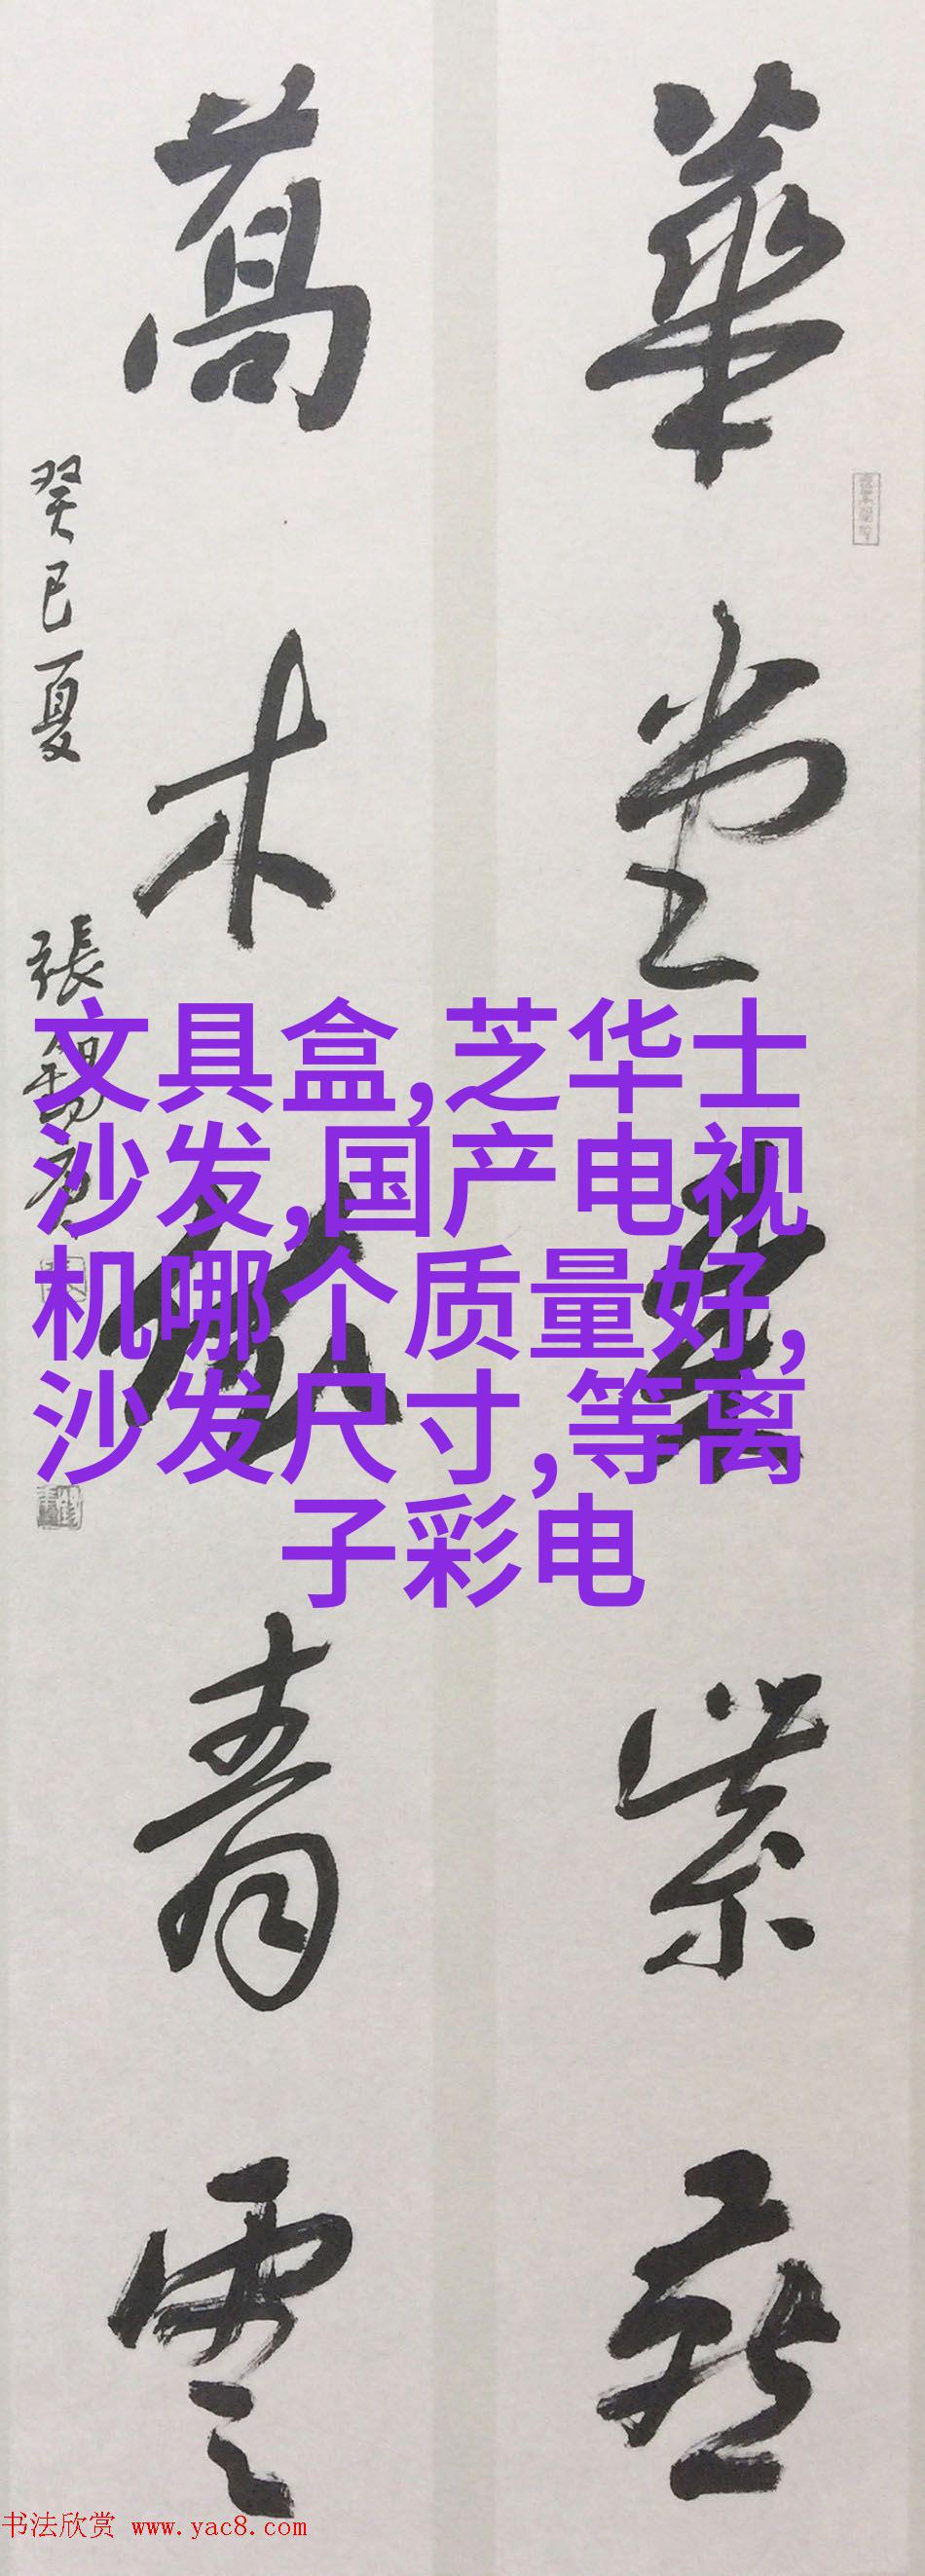 華堂 紫
萬木 青雲
癸巳夏 張錫庚
文具盒,芝华士
沙发,国产电视
机哪个质量好,
沙发尺寸,等离
子彩电
书法欣赏 www.yac8.com